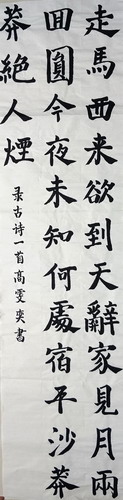 走馬西来欲到天辭家見月兩
回圓今夜未知何處宿平沙莽
莽絕人煙
录古诗一首高雯奕書